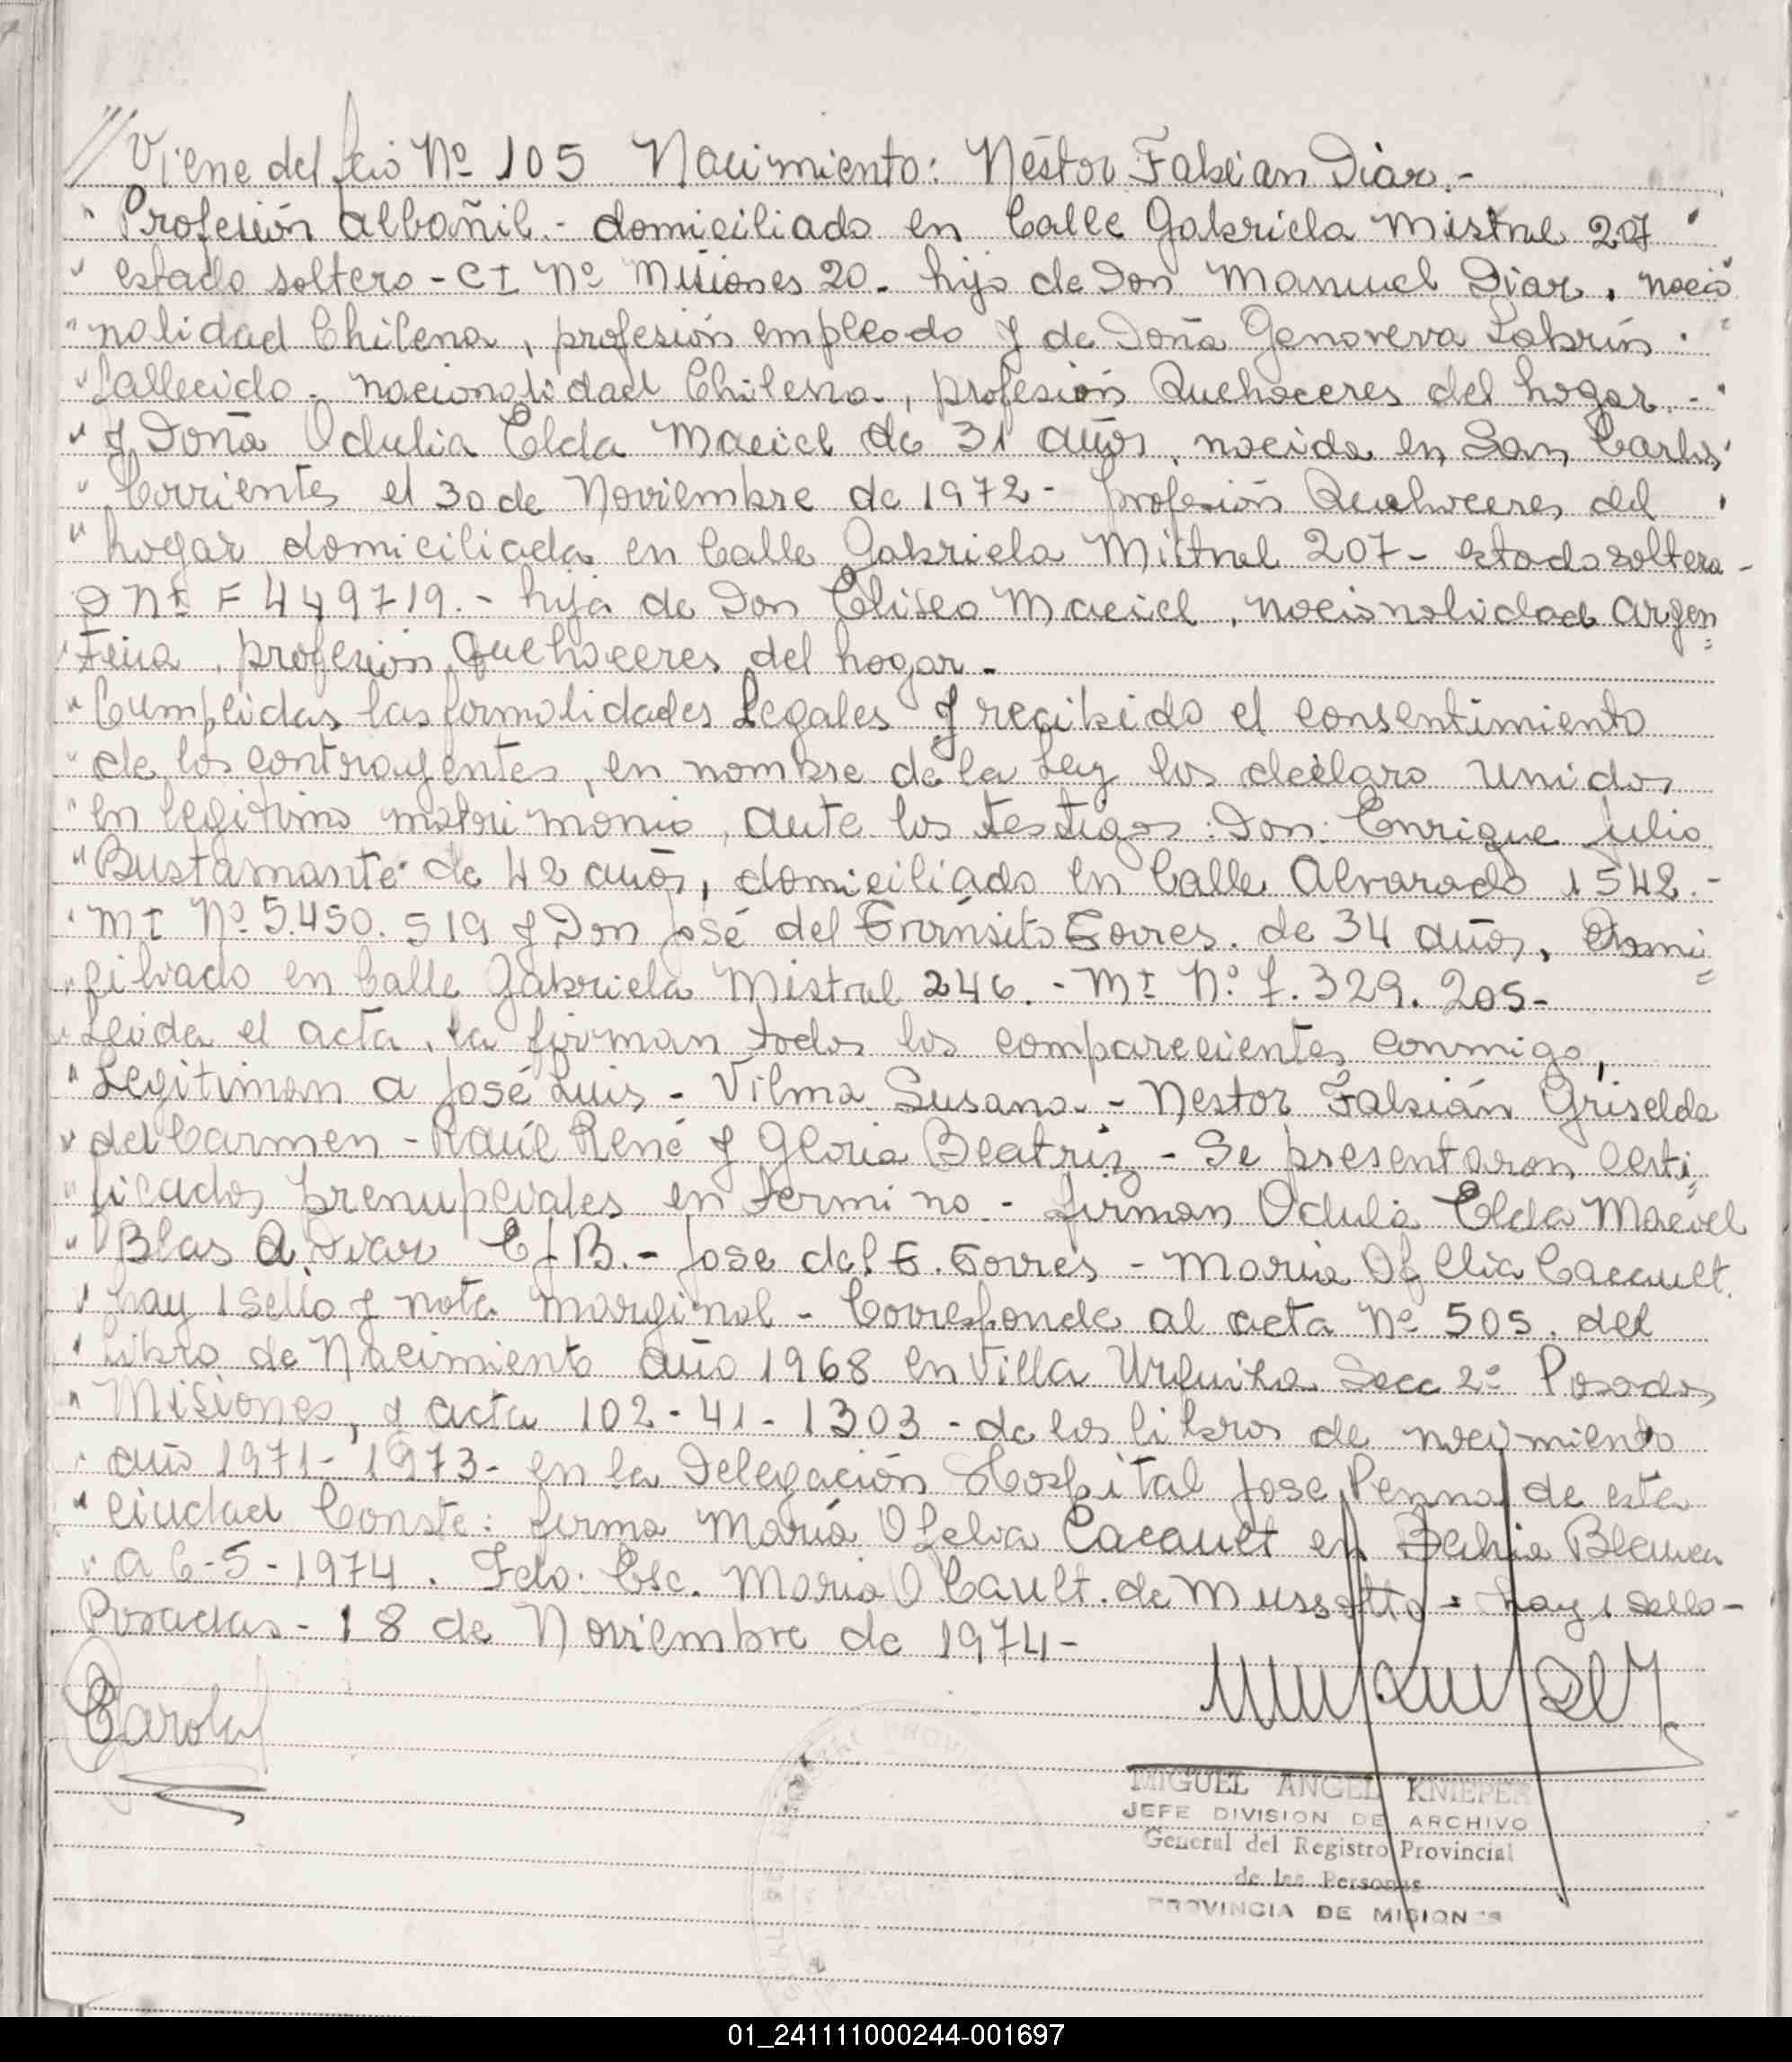 // Viene del fcio Nº 105 Nacimiento: Néstor Fabian Diar.-
" Profesión albañil.- domiciliado en Calle Gabriela Mistral 207 "
" estado soltero - CI Nº Misiones 20. hijo de Don Manuel Diar, nacio
" nalidad Chilena, profesión empleado y de Doña Genoveva Labrín.
" fallecido - nacionalidad Chilena, profesión Quehaceres del hogar.-
" y Doña Odulia Elda Maciel de 31 años, nacida en San Carlos
" Corrientes el 30 de Noviembre de 1972 - profesión Quehaceres del
" hogar domiciliada en Calle Gabriela Mistral 207 - estado soltera -
DNI F 449719.- hija de Don Eliseo Maciel, nacionalidad argen
tina, profesión quehaceres del hogar.
" Cumplidas las formalidades Legales y recibido el consentimiento
" de los contrayentes, en nombre de la Ley los declaro unidos
" en legítimo matrimonio, ante los testigos: Don: Enrique Julio
" Bustamante de 42 años, domiciliado en Calle Alvarado 1542.-
" MI Nº 5.450.519 y Don José del Tránsito Torres. de 34 años, Domi
" ciliado en Calle Gabriela Mistral 246.- MI Nº 7.329.205-
" Leida el acta, la firman todos los comparecientes conmigo,
" Legitiman a José Luis - Vilma Susana - Nestor Fabián Griselda
" del Carmen - Raúl René y Gloria Beatriz - Se presentaron certi
" ficados prenupciales en termino - firman Odulia Elda Maciel
" Blas A. Diar E J B.- Jose del T. Torres - Maria Ofelia Cacault.
" hay 1 sello y nota marginal - Corresponde al acta Nº 505. del
" Libro de Nacimiento año 1968 en Villa Urquiza Secc 2º Posadas
" Misiones, y acta 102-41-1303 - de los libros de nacimiento
" año 1971-1973- en la Delegación Hospital Jose Penna de esta
" ciudad Conste: firma María Ofelia Cacault en Bahia Blanca
" a 6-5-1974. Fdo. Esc. Maria O Cault. de Mussotto = hay 1 sello -
Posadas - 18 de Noviembre de 1974-
Carola
MIGUEL ANGEL KNIEPEN
JEFE DIVISION DE ARCHIVO
General del Registro Provincial
de las Personas
PROVINCIA DE MISIONES
01_241111000244-001697